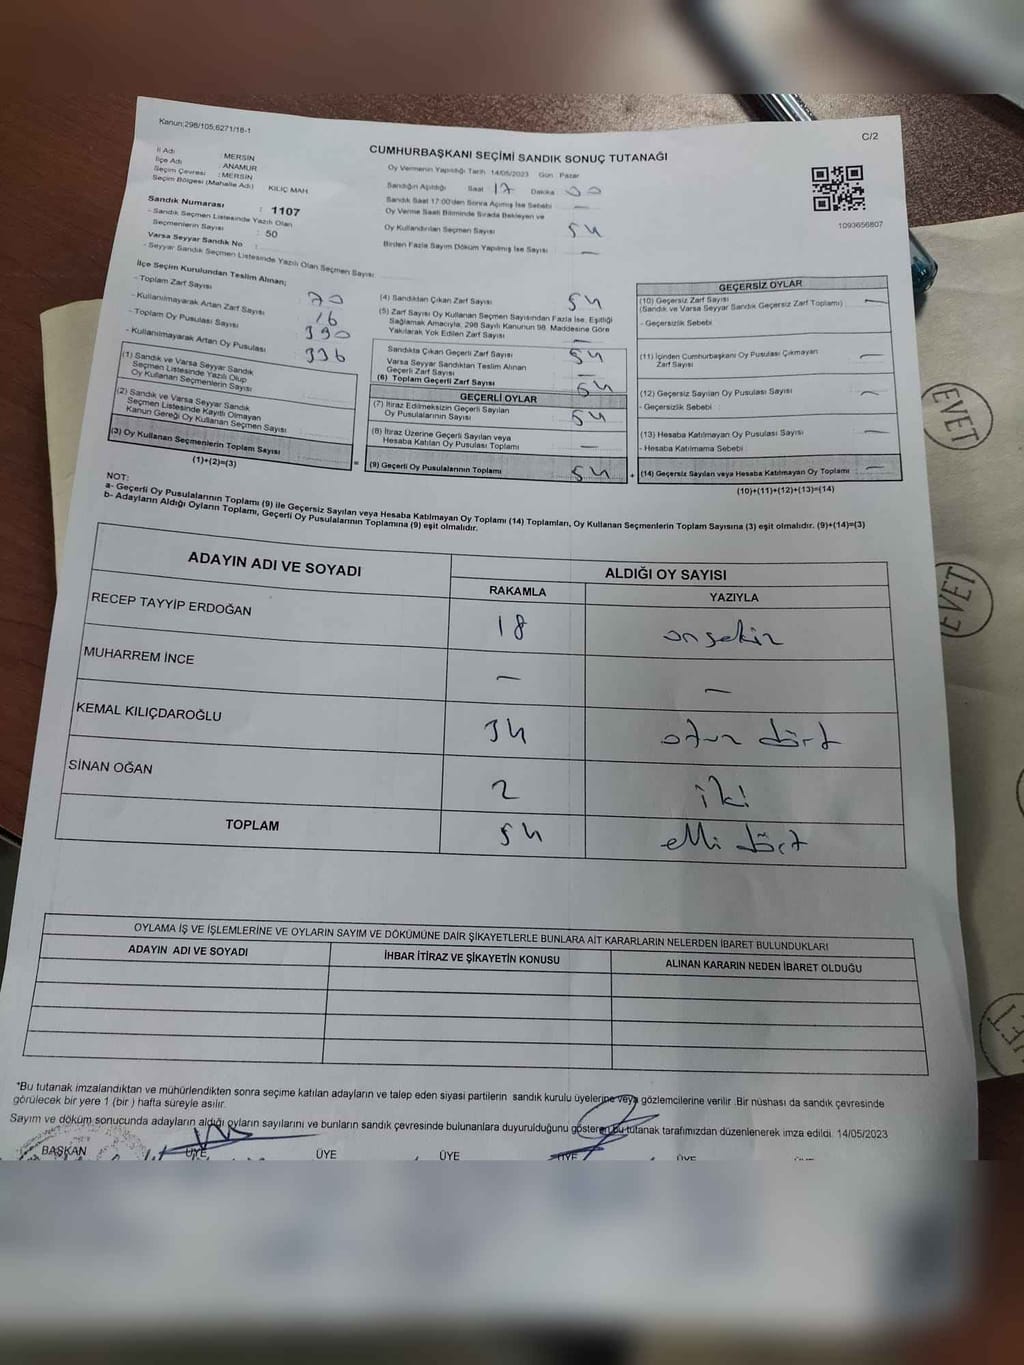 Kanun;298/105,6271/18-1
C/2
CUMHURBAŞKANI SEÇİMİ SANDIK SONUÇ TUTANAĞI
İl Adı : MERSİN
İlçe Adı : ANAMUR
Seçim Çevresi : MERSİN
Seçim Bölgesi (Mahalle Adı) KILIÇ MAH
Sandık Numarası : 1107
- Sandık Seçmen Listesinde Yazılı Olan
Seçmenlerin Sayısı : 50
Varsa Seyyar Sandık No :
- Seyyar Sandık Seçmen Listesinde Yazılı Olan Seçmen Sayısı
Oy Vermenin Yapıldığı Tarih 14/05/2023 Gün : Pazar
Sandığın Açıldığı Saat 17 Dakika 00
Sandık Saat 17:00'den Sonra Açımış İse Sebebi —
Oy Verme Saati Bitiminde Sırada Bekleyen ve
Oy Kullandırılan Seçmen Sayısı 54
Birden Fazla Sayım Döküm Yapılmış İse Sayısı —
1093656807
İlçe Seçim Kurulundan Teslim Alınan;
- Toplam Zarf Sayısı 70
- Kullanılmayarak Artan Zarf Sayısı 16
- Toplam Oy Pusulası Sayısı 390
- Kullanılmayarak Artan Oy Pusulası : 336
(1) Sandık ve Varsa Seyyar Sandık
Seçmen Listesinde Yazılı Olup
Oy Kullanan Seçmenlerin Sayısı
(2) Sandık ve Varsa Seyyar Sandık
Seçmen Listesinde Kayıtlı Olmayan
Kanun Gereği Oy Kullanan Seçmen Sayısı
(3) Oy Kullanan Seçmenlerin Toplam Sayısı
(1)+(2)=(3)
=
(4) Sandıktan Çıkan Zarf Sayısı 54
(5) Zarf Sayısı Oy Kullanan Seçmen Sayısından Fazla İse; Eşitliği
Sağlamak Amacıyla, 298 Sayılı Kanunun 98. Maddesine Göre
Yakılarak Yok Edilen Zarf Sayısı —
Sandıkta Çıkan Geçerli Zarf Sayısı 54
Varsa Seyyar Sandıktan Teslim Alınan
Geçerli Zarf Sayısı —
(6) Toplam Geçerli Zarf Sayısı 54
GEÇERLİ OYLAR
(7) İtiraz Edilmeksizin Geçerli Sayılan
Oy Pusulalarının Sayısı 54
(8) İtiraz Üzerine Geçerli Sayılan veya
Hesaba Katılan Oy Pusulası Toplamı —
(9) Geçerli Oy Pusulalarının Toplamı 54
+
GEÇERSİZ OYLAR
(10) Geçersiz Zarf Sayısı —
(Sandık ve Varsa Seyyar Sandık Geçersiz Zarf Toplamı)
- Geçersizlik Sebebi
(11) İçinden Cumhurbaşkanı Oy Pusulası Çıkmayan —
Zarf Sayısı
(12) Geçersiz Sayılan Oy Pusulası Sayısı —
- Geçersizlik Sebebi
(13) Hesaba Katılmayan Oy Pusulası Sayısı —
- Hesaba Katılmama Sebebi
(14) Geçersiz Sayılan veya Hesaba Katılmayan Oy Toplamı —
(10)+(11)+(12)+(13)=(14)
NOT:
a- Geçerli Oy Pusulalarının Toplamı (9) ile Geçersiz Sayılan veya Hesaba Katılmayan Oy Toplamı (14) Toplamları, Oy Kullanan Seçmenlerin Toplam Sayısına (3) eşit olmalıdır. (9)+(14)=(3)
b- Adayların Aldığı Oyların Toplamı, Geçerli Oy Pusulalarının Toplamına (9) eşit olmalıdır.
ADAYIN ADI VE SOYADI
ALDIĞI OY SAYISI
RAKAMLA YAZIYLA
RECEP TAYYİP ERDOĞAN 18 onsekiz
MUHARREM İNCE — —
KEMAL KILIÇDAROĞLU 34 otuz dört
SİNAN OĞAN 2 iki
TOPLAM 54 elli dört
OYLAMA İŞ VE İŞLEMLERİNE VE OYLARIN SAYIM VE DÖKÜMÜNE DAİR ŞİKAYETLERLE BUNLARA AİT KARARLARIN NELERDEN İBARET BULUNDUKLARI
ADAYIN ADI VE SOYADI İHBAR İTİRAZ VE ŞİKAYETİN KONUSU ALINAN KARARIN NEDEN İBARET OLDUĞU
*Bu tutanak imzalandıktan ve mühürlendikten sonra seçime katılan adayların ve talep eden siyasi partilerin sandık kurulu üyelerine veya gözlemcilerine verilir .Bir nüshası da sandık çevresinde
görülecek bir yere 1 (bir ) hafta süreyle asılır.
Sayım ve döküm sonucunda adayların aldığı oyların sayılarını ve bunların sandık çevresinde bulunanlara duyurulduğunu gösteren bu tutanak tarafımızdan düzenlenerek imza edildi. 14/05/2023
BAŞKAN ÜYE ÜYE ÜYE ÜYE ÜYE
EVET
EVET